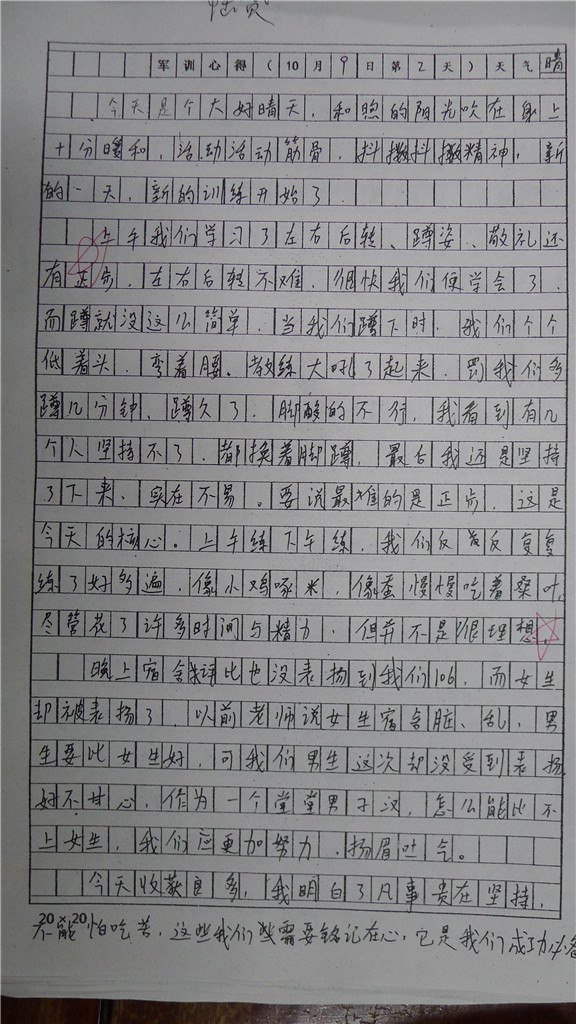 军训心得（10月9日第2天）天气晴
今天是个大好晴天，和煦的阳光吹在身上
十分暖和，活动活动筋骨，抖擞抖擞精神，新
的一天，新的训练开始了．
上午我们学习了左右后转、蹲姿、敬礼还
有正步，左右后转不难，很快我们便学会了，
而蹲就没这么简单．当我们蹲下时．我们个个
低着头，弯着腰。教练大吼了起来，罚我们多
蹲几分钟、蹲久了，脚酸的不行，我看到有几
个人坚持不了，都换着脚蹲，最后我还是坚持
了下来、实在不易。要说最难的是正步，这是
今天的核心。上午练下午练，我们反反复复
练了好多遍，像小鸡啄米，像蚕慢慢吃着桑叶，
尽管花了许多时间与精力．但并不是很理想．
晚上宿舍评比也没表扬到我们106，而女生
却被表扬了．以前老师说女生宿舍脏、乱，男
生要比女生好，可我们男生这次却没受到表扬
好不甘心，作为一个堂堂男子汉，怎么能比不
上女生，我们应更加努力，扬眉吐气。
今天收获良多，我明白了凡事贵在坚持，
20×20
不能怕吃苦，这些我们些需要铭记在心，它是我们成功必备